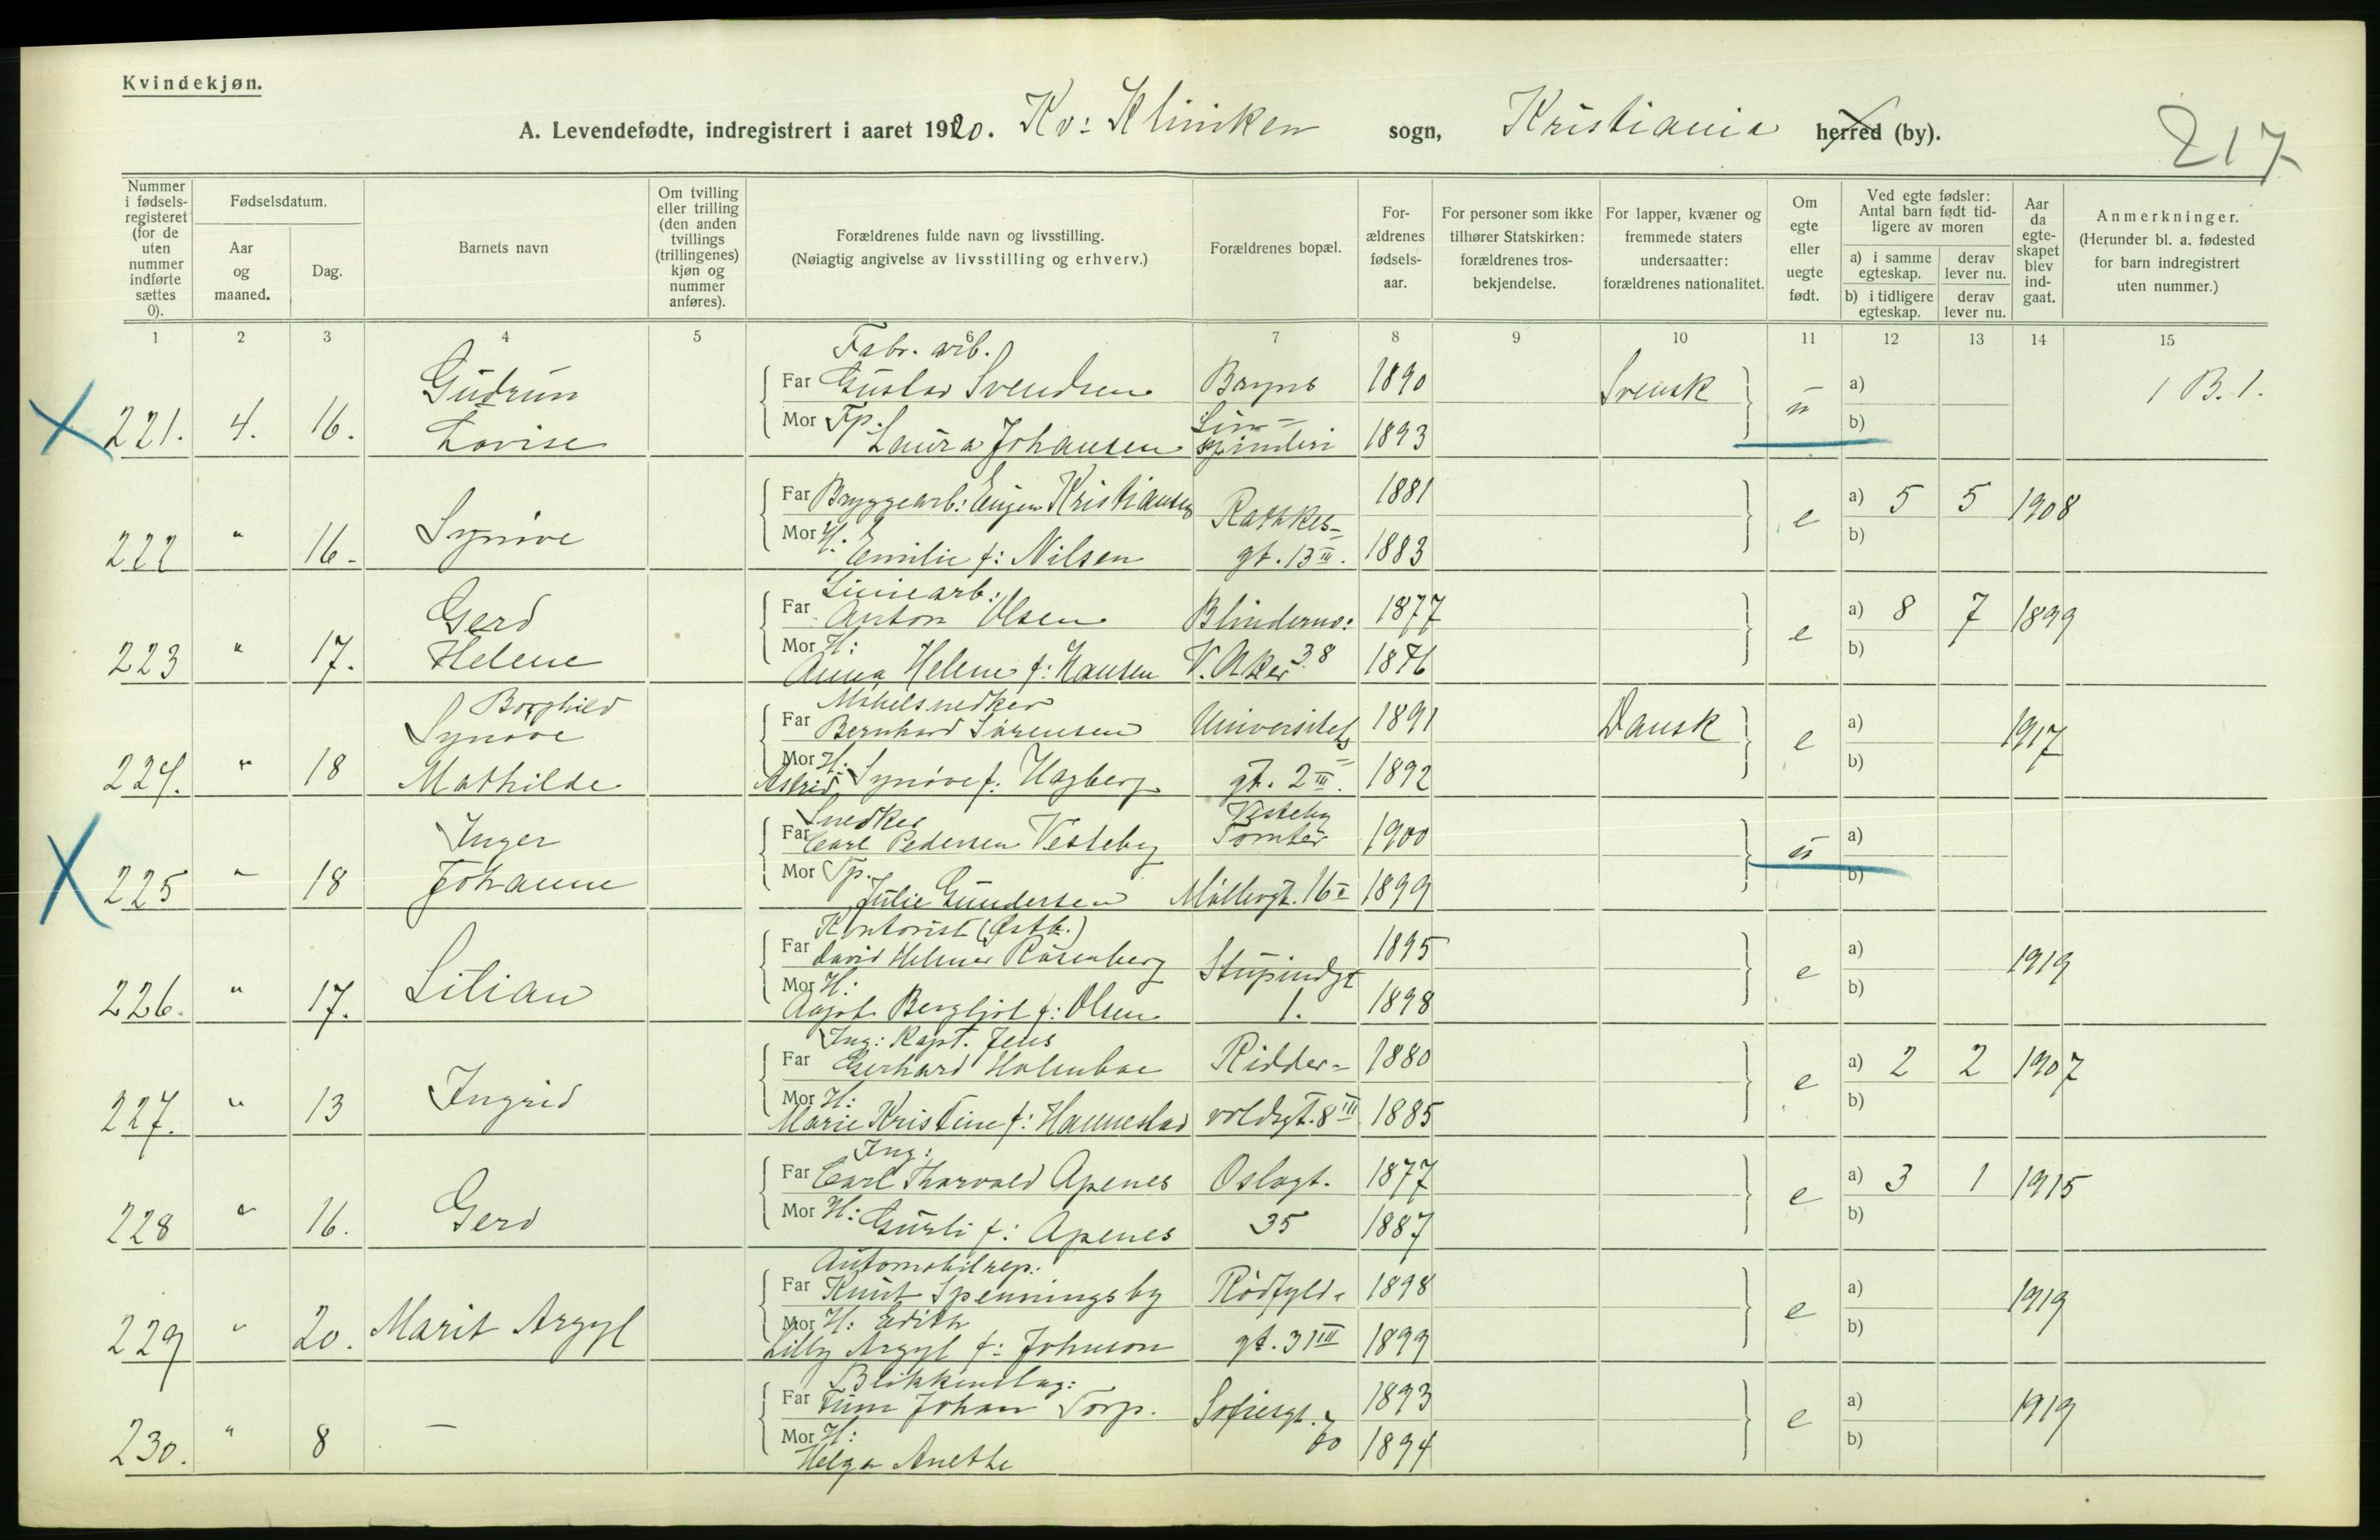 Kvindekjøn.
A. Levendefødte, indregistrert i aaret 1920. Kv: Kliniken sogn, Kristiania herred (by).
217
Nummer i fødsels-registeret (for de uten nummer indførte sættes 0).
Fødselsdatum.
Aar og maaned.
Dag.
Barnets navn
Om tvilling eller trilling (den anden tvillings (trillingenes) kjøn og nummer anføres).
Forældrenes fulde navn og livsstilling.
(Nøiagtig angivelse av livsstilling og erhverv.)
Forældrenes bopæl.
For-ældrenes fødsels-aar.
For personer som ikke tilhører Statskirken: forældrenes tros-bekjendelse.
For lapper, kvæner og fremmede staters undersaatter: forældrenes nationalitet.
Om egte eller uegte født.
Ved egte fødsler: Antal barn født tid-ligere av moren
a) i samme egteskap.
derav lever nu.
b) i tidligere egteskap.
derav lever nu.
Aar da egte-skapet blev ind-gaat.
Anmerkninger.
(Herunder bl. a. fødested for barn indregistrert uten nummer.)
1 2 3 4 5 6 7 8 9 10 11 12 13 14 15
Fabr. arb.
Gudrun Far Gustav Svendsen Bryns 1890 Svensk u a) 1 B. 1.
221. 4. 16. Lovise Mor Fp. Laura Johansen Lin= spinderi 1893 b)
Far Bryggearb: Eugen Kristiansen 1881 a) 5 5 1908
222 " 16. Synöve Mor H: Emilie f: Nilsen Rathkes= gt. 13 III. 1883 e b)
Liniearb:
Gerd Far Anton Olsen Blindernv: 1877 a) 8 7 1899
223 " 17. Helene Mor H: Anna Helene f: Hansen V. Aker 38 1876 e b)
Borghild Möbelsnedker
Synöve Far Bernhard Sörensen Universitets 1891 Dansk e a) 1917
224. " 18 Mathilde Mor H: Astrid Synöve f: Hagberg gt. 2 III. 1892 b)
Snedker Vesteby
Inger Far Carl Pedersen Vesteby Tomter 1900 u a)
225 " 18 Johanne Mor Tp. Julie Gundersen Möllergt. 16 I 1899 b)
Kontorist (Østb.)
Far David Helmer Rosenberg 1895 a) 1919
226. " 17. Lilian Mor H: Aagot Bergljot f: Olsen Stupindgt 1. 1898 e b)
Ing: Kapt. Jens
Far Gerhard Holmboe Ridder= 1880 a) 2 2 1907
227. " 13 Ingrid Mor H: Marie Kristine f: Hannestad voldsgt. 8 III 1885 e b)
Ing:
Far Carl Thorvald Apenes Oslogt. 1877 a) 3 1 1915
228 " 16. Gerd Mor H: Gurli f: Apenes 35 1887 e b)
Automobilrep:
Far Knut Spenningsby Rödfyld= 1898 a) 1919
229 " 20. Marit Argyl Mor H: Edith Lilly Argyl f: Johnson gt. 3 III 1899 e b)
Blikkenslag:
Far Finn Johan Torp. Sofiesgt. 1893 a) 1919
230. " 8 — Mor H: Helga Anethe 70 1894 e b)